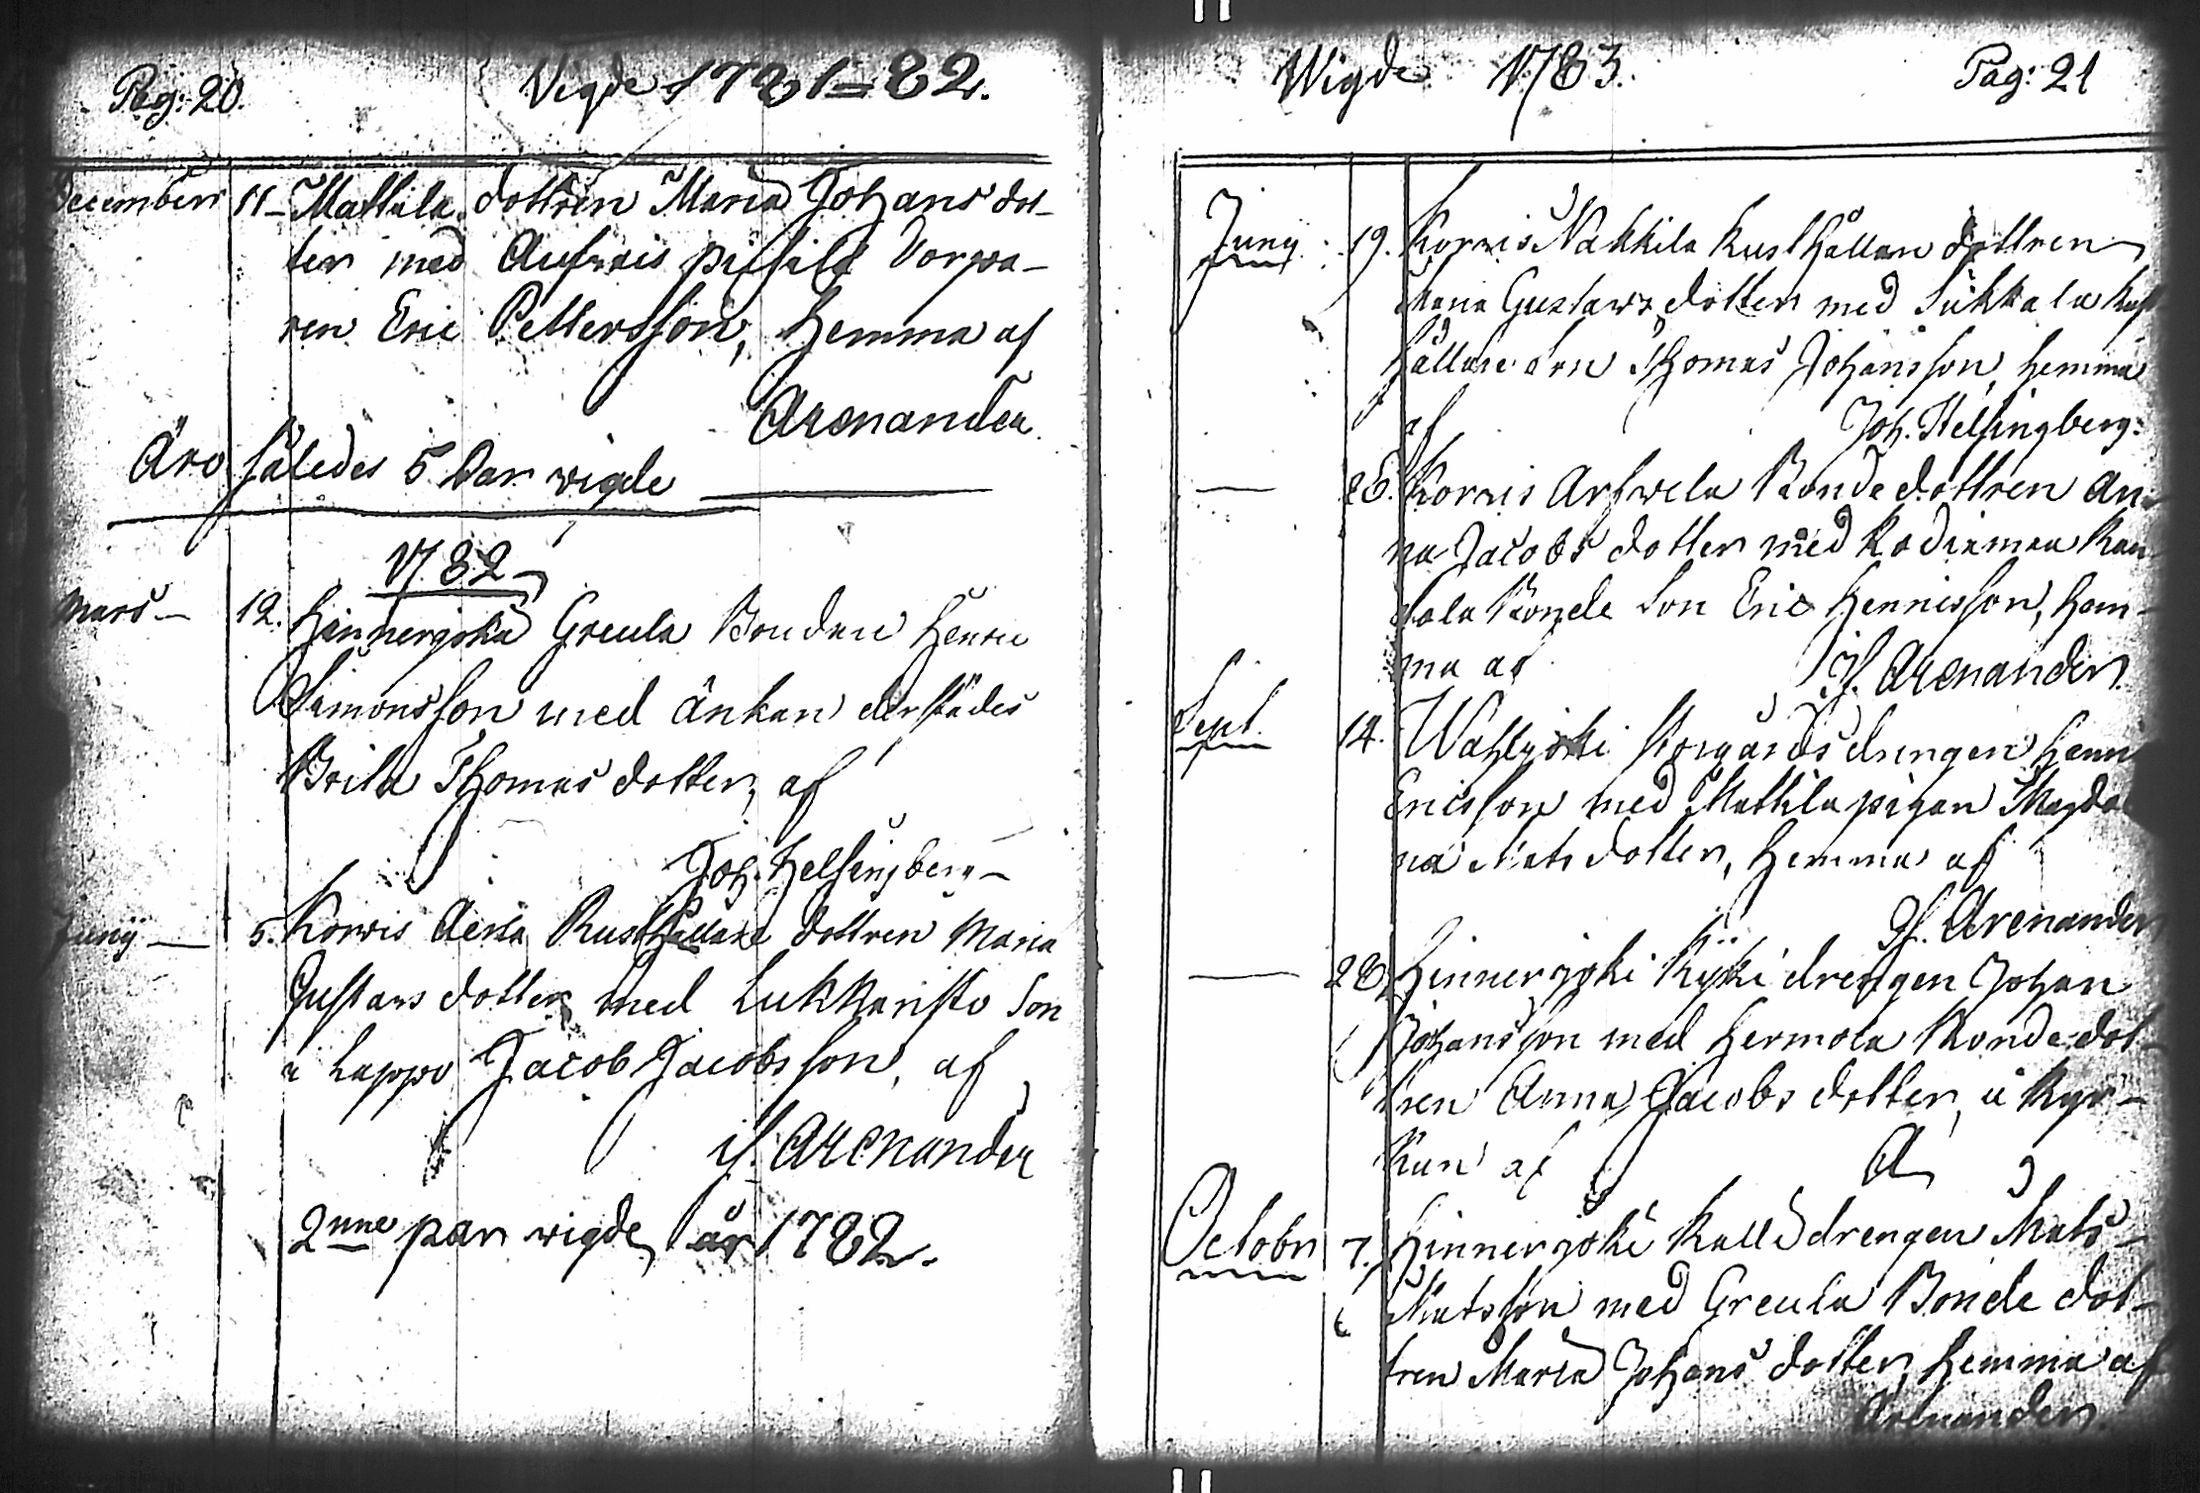 Pag: 20.
Vigde 1781-82.
December 11- Mattila dottren Maria Johans dot-
ter med Aufwais Torpa-
ren Eric Pettersson, hemma af
Arenander.
Äro således 5 Par vigde
1782
Mars- 12. Hinnerjoki Greula Bonden Henric
Simonsson med änkan derstädes
Brita Thomas dotter, af
Joh. Helsingberg-
Junij - 5. Korvis Aerla Rusthållare dottren Maria
Gustavs dotter med Lukkaristo Son
i Lappo Jacob Jacobsson, af
J. Arenander
2nne par vigde år 1782.
Wigde 1783.
Pag: 21
Juny 19. Korvis Nakkila Rusthållare dottren
Maria Gustavs dotter med Sukkala Rust
hållare Son Thomas Johansson, hemma
af Joh. Helsingberg:
- 26. Korvis Arfwela Bonde dottren An-
na Jacobs dotter med Kodiamaa Kau
tola Bonde Son Eric Henricsson, hem-
ma af J. Arenander
Sept. 14. Wahlyoki Korgårds drengen Henric
Ericsson med Mattila pigan Magda
na Mats dotter, hemma af
J. Arenander
- 28. Hinnerjoki Kyöki drengen Johan
Johansson med Hermola Bonde dot-
tren Anna Jacobs dotter, i Kyr-
kan af A
Octobr 7. Hinnerjoki Kalli drengen Mats
Matsson med Greula Bonde dot-
tren Maria Johans dotter, hemma af
Arenander.